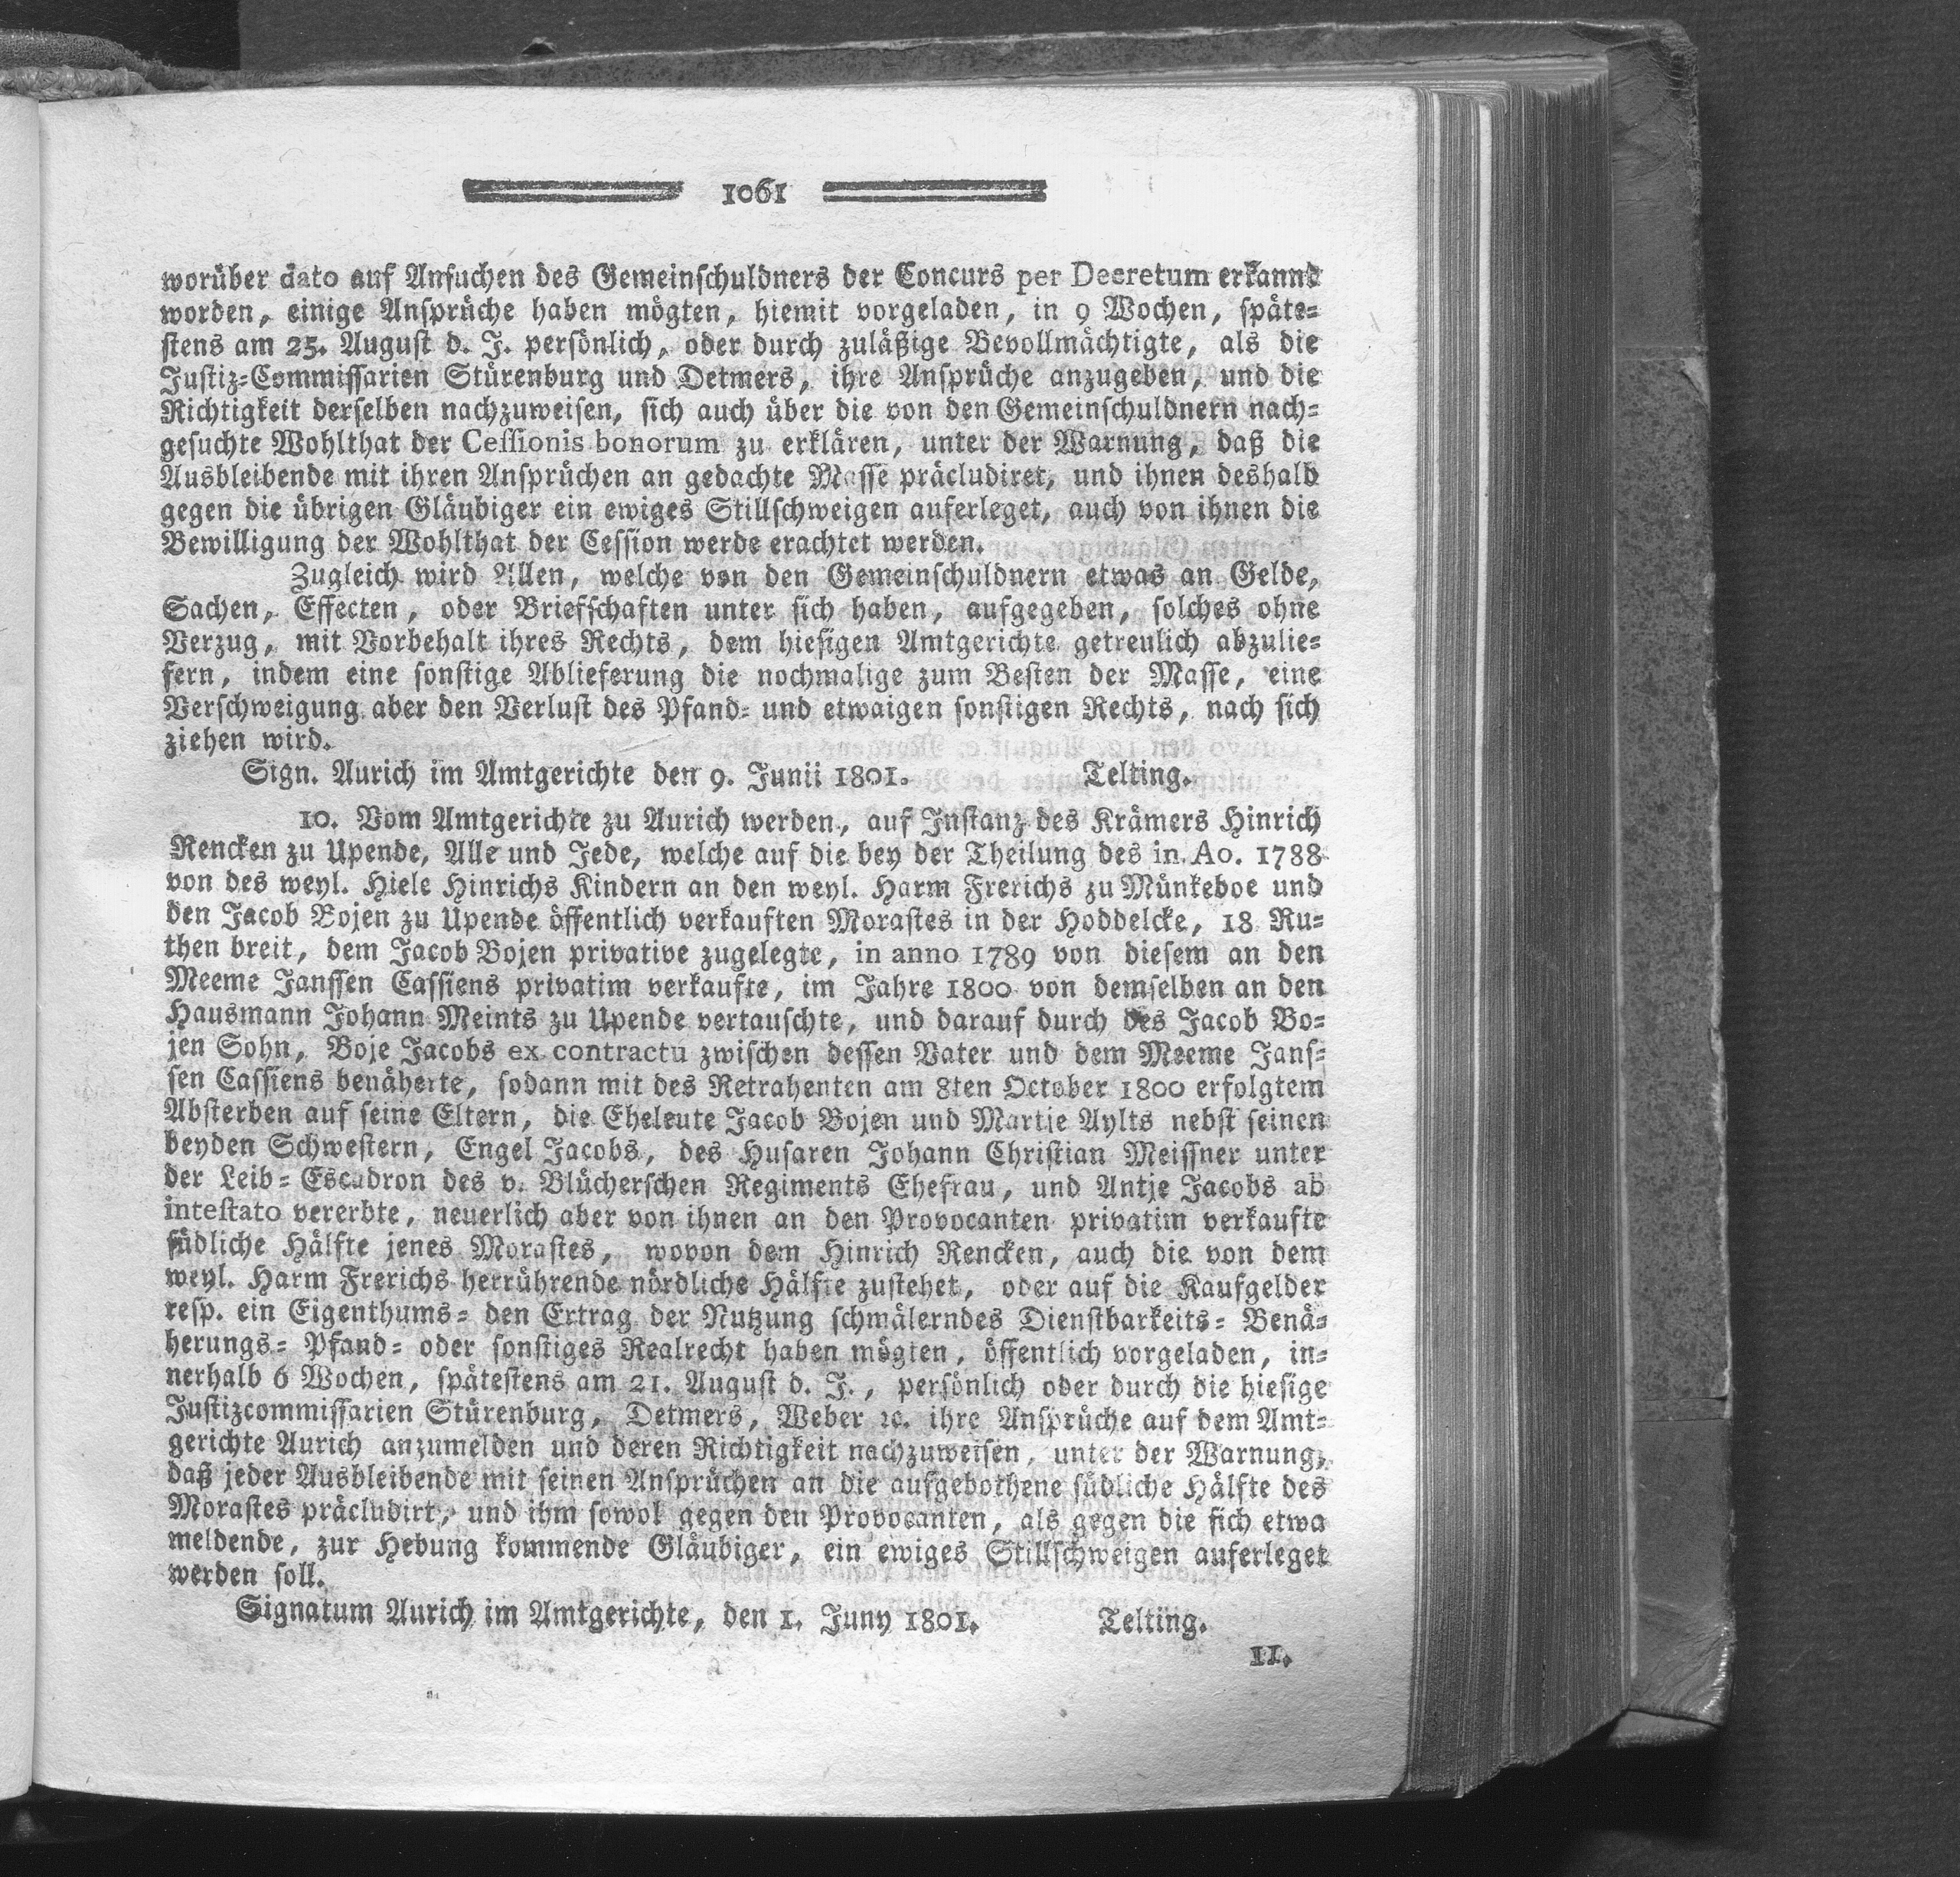 1061
worüber dato auf Ansuchen des Gemeinschuldners der Concurs per Decretum erkannt
worden, einige Ansprüche haben mögten, hiemit vorgeladen, in 9 Wochen, späte-
stens am 25. August d. J. persönlich, oder durch zuläßige Bevollmächtigte, als die
Justiz-Commissarien Stürenburg und Detmers, ihre Ansprüche anzugeben, und die
Richtigkeit derselben nachzuweisen, sich auch über die von den Gemeinschuldnern nach-
gesuchte Wohlthat der Cessionis bonorum zu erklären, unter der Warnung, daß die
Ausbleibende mit ihren Ansprüchen an gedachte Masse präcludiret, und ihnen deshalb
gegen die übrigen Gläubiger ein ewiges Stillschweigen auferleget, auch von ihnen die
Bewilligung der Wohlthat der Cession werde erachtet werden.
Zugleich wird Allen, welche von den Gemeinschuldnern etwas an Gelde,
Sachen, Effecten, oder Briefschaften unter sich haben, aufgegeben, solches ohne
Verzug, mit Vorbehalt ihres Rechts, dem hiesigen Amtgerichte getreulich abzulie-
fern, indem eine sonstige Ablieferung die nochmalige zum Besten der Masse, eine
Verschweigung aber den Verlust des Pfand- und etwaigen sonstigen Rechts, nach sich
ziehen wird.
Sign. Aurich im Amtgerichte den 9. Junii 1801. Telting.
10. Vom Amtgerichte zu Aurich werden, auf Instanz des Krämers Hinrich
Rencken zu Upende, Alle und Jede, welche auf die bey der Theilung des in Ao. 1788
von des weyl. Hiele Hinrichs Kindern an den weyl. Harm Frerichs zu Münkeboe und
den Jacob Bojen zu Upende öffentlich verkauften Morastes in der Hoddelcke, 18 Ru-
then breit, dem Jacob Bojen privative zugelegte, in anno 1789 von diesem an den
Meeme Janssen Cassiens privatim verkaufte, im Jahre 1800 von demselben an den
Hausmann Johann Meints zu Upende vertauschte, und darauf durch des Jacob Bo-
jen Sohn, Boje Jacobs ex contractu zwischen dessen Vater und dem Meeme Jans-
sen Cassiens benäherte, sodann mit des Retrahenten am 8ten October 1800 erfolgtem
Absterben auf seine Eltern, die Eheleute Jacob Bojen und Martje Aylts nebst seinen
beyden Schwestern, Engel Jacobs, des Husaren Johann Christian Meissner unter
der Leib-Escadron des v. Blücherschen Regiments Ehefrau, und Antje Jacobs ab
intestato vererbte, neuerlich aber von ihnen an den Provocanten privatim verkaufte
südliche Hälfte jenes Morastes, wovon dem Hinrich Rencken, auch die von dem
weyl. Harm Frerichs herrührende nördliche Hälfte zustehet, oder auf die Kaufgelder
resp. ein Eigenthums- den Ertrag der Nutzung schmälerndes Dienstbarkeits- Benä-
herungs- Pfand- oder sonstiges Realrecht haben mögten, öffentlich vorgeladen, in-
nerhalb 6 Wochen, spätestens am 21. August d. J., persönlich oder durch die hiesige
Justizcommissarien Stürenburg, Detmers, Weber ꝛc. ihre Ansprüche auf dem Amt-
gerichte Aurich anzumelden und deren Richtigkeit nachzuweisen, unter der Warnung,
daß jeder Ausbleibende mit seinen Ansprüchen an die aufgebothene südliche Hälfte des
Morastes präcludirt, und ihm sowol gegen den Provocanten, als gegen die sich etwa
meldende, zur Hebung kommende Gläubiger, ein ewiges Stillschweigen auferleget
werden soll.
Signatum Aurich im Amtgerichte, den 1. Juny 1801. Telting.
11.